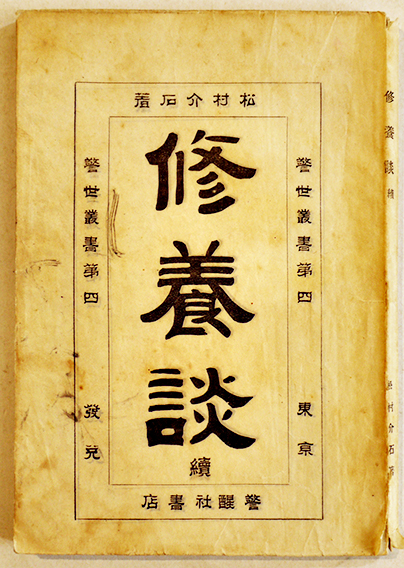 松村介石著
修養談
續
警世叢書第四 東京
警世叢書第四 發兌
警醒社書店
修養談 續
松村介石著